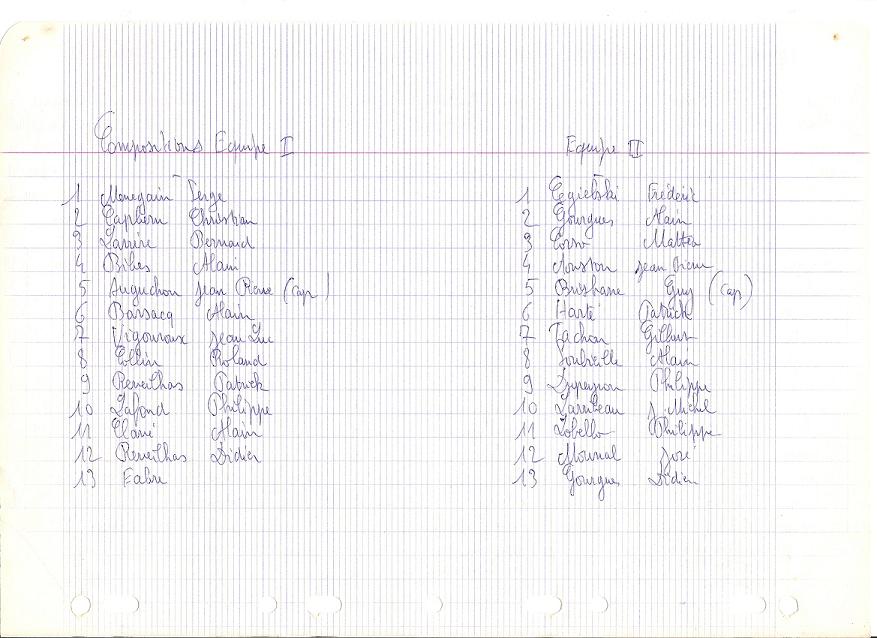 Compositions Equipe I
1 Menegain Serge
2 Capbern Christian
3 Larrère Bernard
4 Bibes Alain
5 Auguchon Jean Pierre (cap)
6 Barsacq Alain
7 Vigouroux Jean Luc
8 Collin Roland
9 Reveilhas Patrick
10 Lafond Philippe
11 Alain
12 Reveilhas Didier
13 Fabre
Equipe II
1 Frédéric
2 Gourgues Alain
3 Corso
4 Jean Pierre
5 Brisbane Guy (cap)
6 Harté Patrick
7 Tachon Gilbert
8 Soubielle Alain
9 Dupeyron Philippe
10 J. Michel
11 Lobello Philippe
12 Mounal José
13 Gourgues Didier